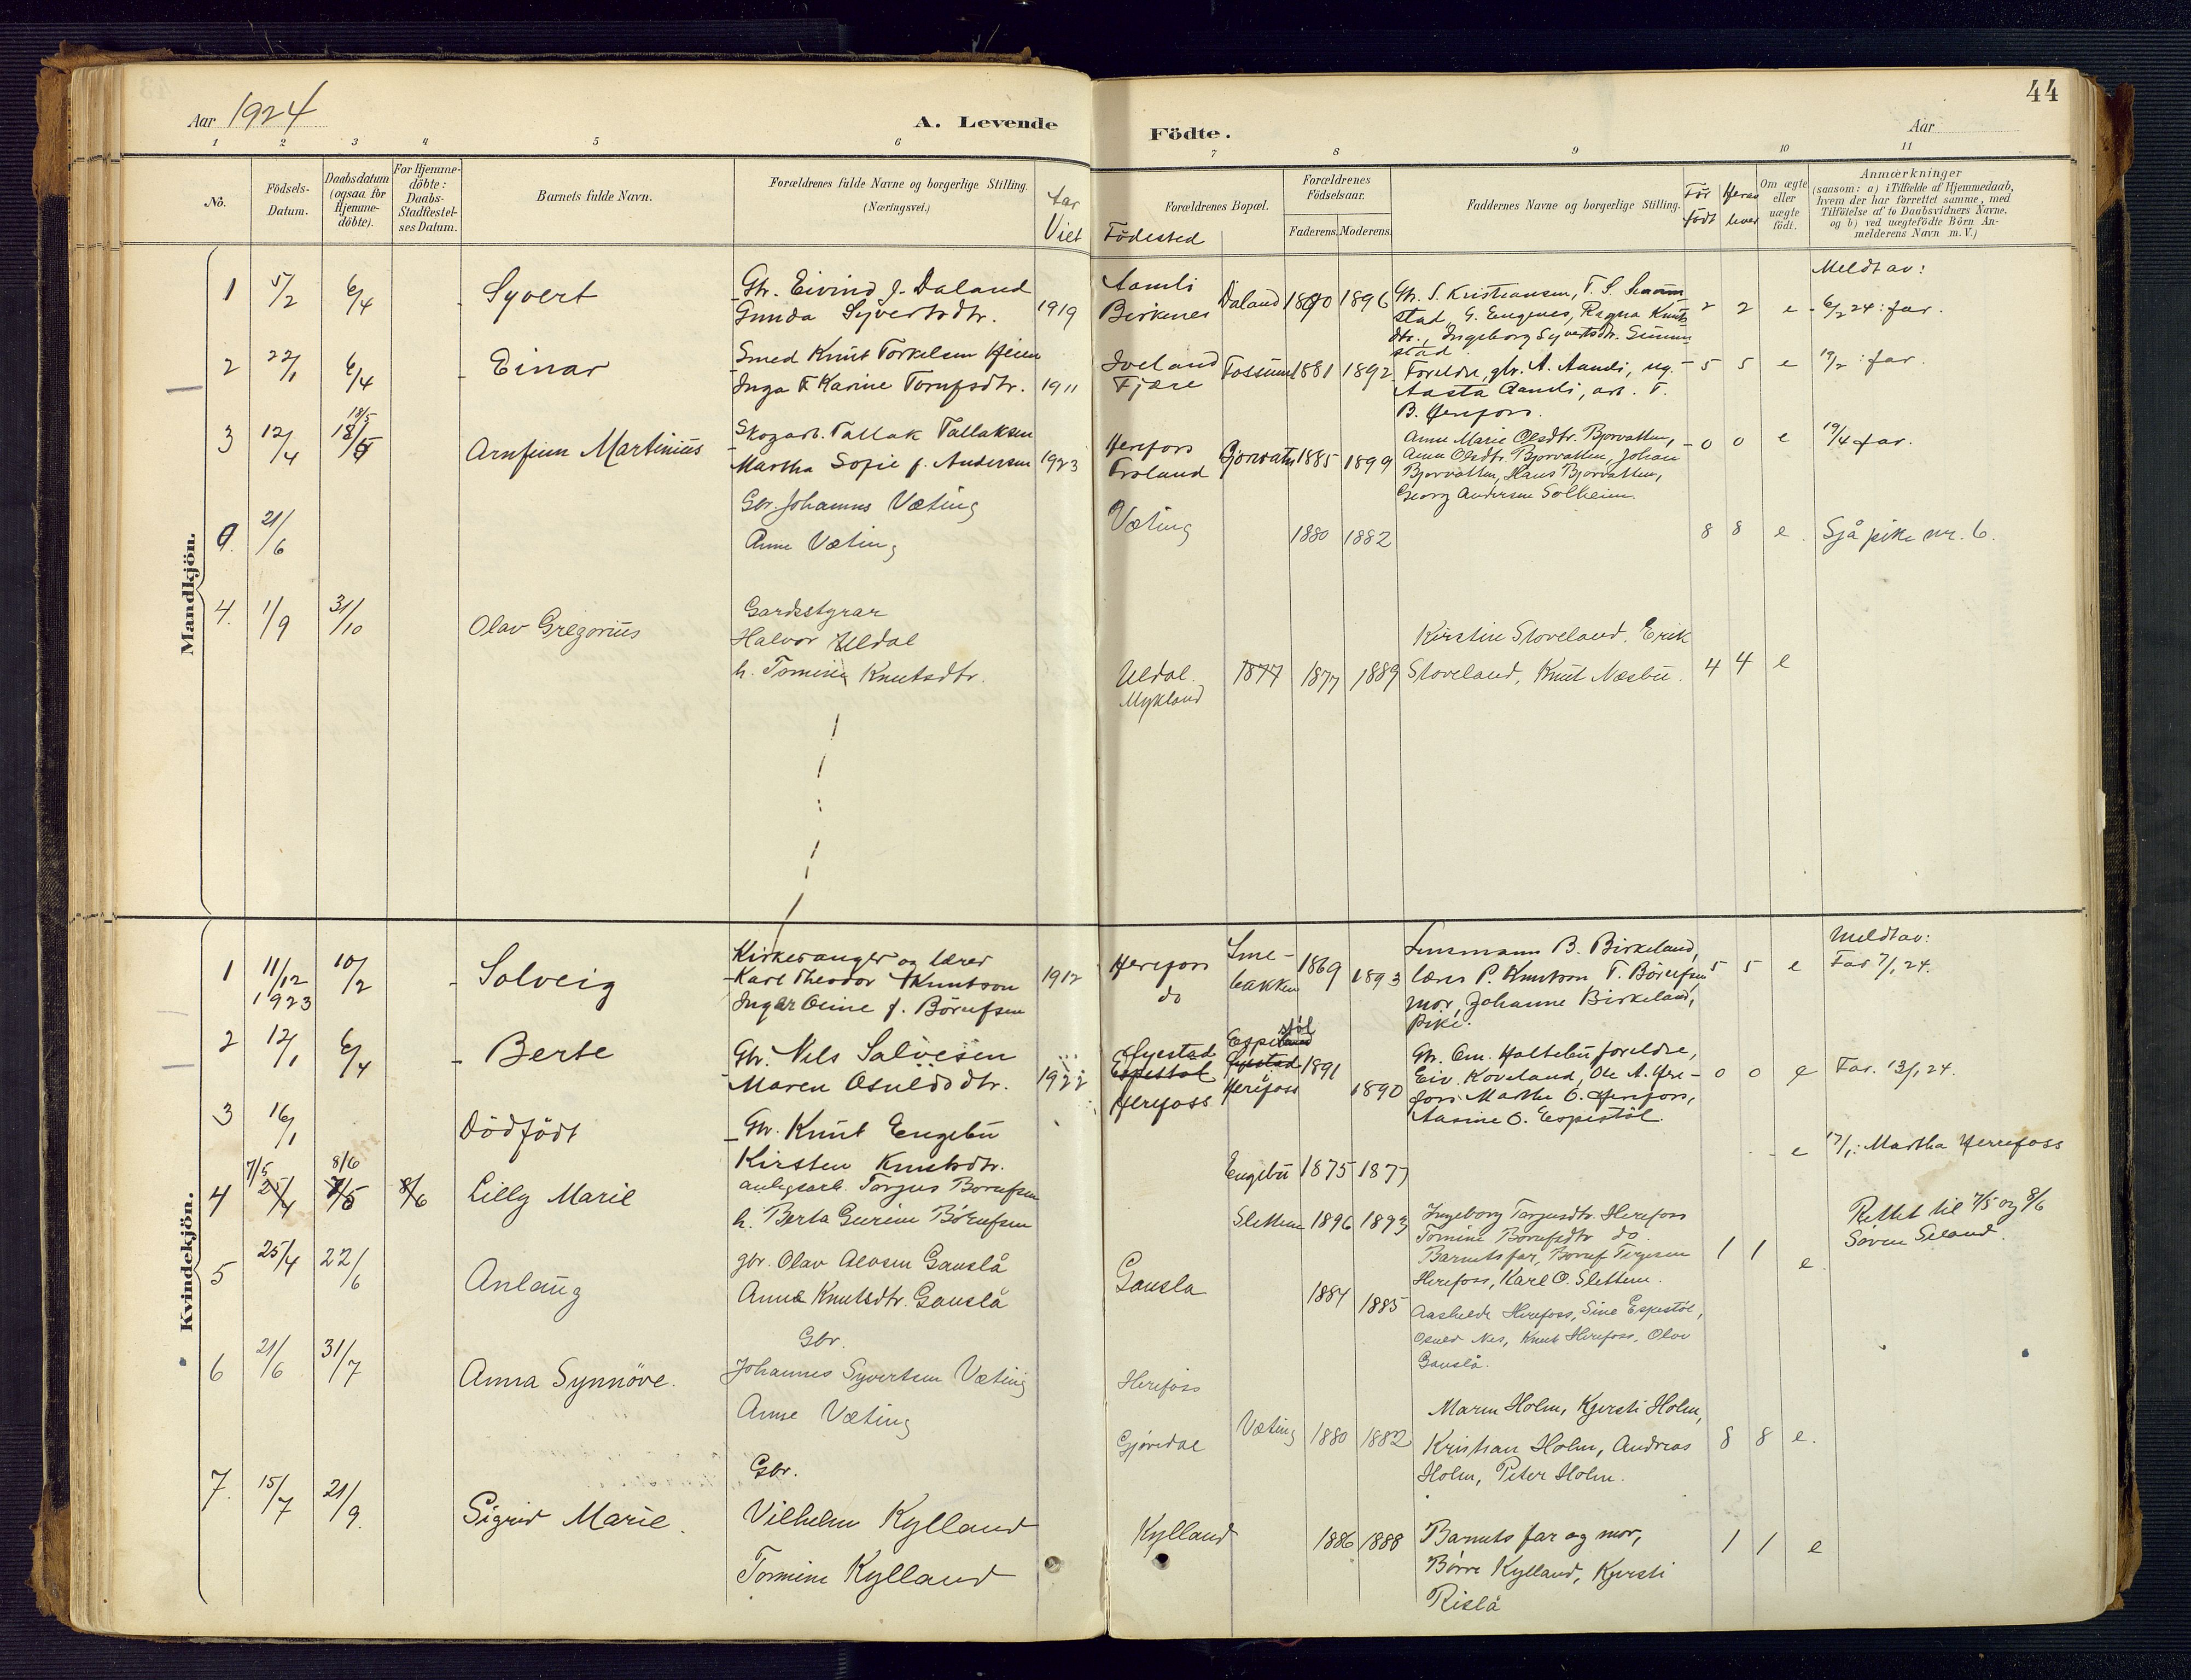 44
Aar 1924
A. Levende
Födte.
Aar
1 2 3 4 5 6 7 8 9 10 11
No.
Födsels-
Datum.
Daabsdatum
(ogsaa for
Hjemme-
döbte).
For Hjemme-
döbte:
Daabs-
Stadfæstel-
ses Datum.
Barnets fulde Navn.
Forældrenes fulde Navne og borgerlige Stilling.
(Næringsvei.)
Aar
Viet
Forældrenes Bopæl.
Födested
Forældrenes
Födselsaar.
Faderens. Moderens.
Faddernes Navne og borgerlige Stilling.
För
födt
Heraf
lever
Om ægte
eller
uægte
födt.
Anmærkninger
(saasom: a) i Tilfælde af Hjemmedaab,
hvem der har forrettet samme, med
Tilföielse af to Daabsvidners Navne,
og b) ved uægtefödte Börn An-
melderens Navn m. V.)
Mandkjön.
1 5/2 6/4 Syvert
Gbr. Eivind J. Daland
Gunda Syvertsdtr. 1919
Aamli
Birkenes Daland 1890 1896
Gb. S. Kristiansen, T. S.
stad, G. Eugenes, Ragna Knuts
dtr., Ingeborg Syvertsdtr.
stad
2 2 e
Meldt av:
6/2 24: far.
2 22/1 6/4 Einar
Smed Knut Torkelsen Heien
Inga Karine Torufsdtr. 1911
Iveland
Fjære Fossum 1881 1892
Foreldre, gbr. A. Aamli, ug.
Aasta Aamli, arb. T.
B. Herefoss.
5 5 e 19/2: far.
3 12/4 18/5 18/5 Arnfinn Martinius
Skogarb. Tallak Tallaksen
Martha Sofie f. Andersen 1923
Herefoss
Froland Bjorvatn 1885 1899
Anne Marie Olsdtr. Bjorvatten,
Anna Olsdtr. Bjorvatten, Johan
Bjorvatten, Hans Bjorvatten,
Georg Andersen Solheim.
0 0 e 19/4 far.
0. 21/6
Gbr. Johannes Væting
Anne Væting
Væting 1880 1882
8 8 e. Sjå pike nr. 6.
4. 1/9 31/10 Olav Gregorius
Gardstyrar
Halvor Uldal
h. Tomine Knutsdtr.
Uldal.
Mykland
1877 1877 1889
Kirstin Stoveland. Erik
Stoveland, Knut Næsbu.
4 4 e
Kvindekjön.
1 11/12 1923 10/2 Solveig
Kirkesanger og lærer
Karl Theodor Knutson
Inger Oline f. Börufsen 1912
Herefoss
do
Sme-
bakken 1869 1893
Lensmann B. Birkeland,
lærer P. Knutson T. Börufsen
mor, Johanne Birkeland,
pike.
5 5 e
Meldt av:
Far 7/1 24.
2 12/1 6/4 Berte
Gbr. Nels Salvesen
Maren Osuldsdtr. 1922
Øyestad
Espestøl
Herefoss
Espestøl
Øyestad
Herefoss 1891 1890
Gbr. Om. Haltebu foreldre,
Eiv. Koveland, Ole A. Here-
foss Marthe O. Herefoss,
Aasine O. Espestøl.
0 0 e Far. 13/1 24.
3 16/1 Dödfödt
Gbr. Knut Engebu
Kirsten Knutsdtr.
Engebu 1875 1877
e 17/1: Martha Herrefoss
4 7/5 25/4 8/6 7/5 8/6 Lilly Marie
anlegsarb. Torjus Borufsen
h. Berta Gurine Börufsen
Sletten 1896 1893
Ingeborg Torjusdtr. Herefoss
Tomine Börufsdtr do.
Barnets far, Boruf Terjesen
Herefoss, Karl O. Slettene.
1 1 e.
Rettet til 7/5 og 8/6
Søren Seland.
5 25/4 22/6 Anlaug
gbr. Olav Olosen Gauslå
Anna Knutsdtr. Gauslå
Gausla 1884 1885
Aashilde Herefoss, Sine Espestøl,
Osuld Nes, Knut Herefoss, Olav
Gauslå.
6 21/6 31/7 Anna Synnöve.
Gbr.
Johannes Syvertsen Væting
Anne Væting
Herefoss
Gjøvdal Væting 1880 1882
Maren Holm, Kjersti Holm,
Kristian Holm, Andreas
Holm, Peter Holm.
8 8 e.
7. 15/7 21/9. Sigrid Marie.
Gbr.
Vilhelm Kylland
Tomine Kylland
Kylland 1886 1888
Barnets far og mor,
Börre Kylland, Kjersti
Rislå
1 1 e